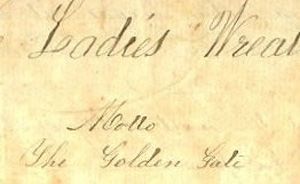 Ladies Wreat
Motto
The Golden Gate